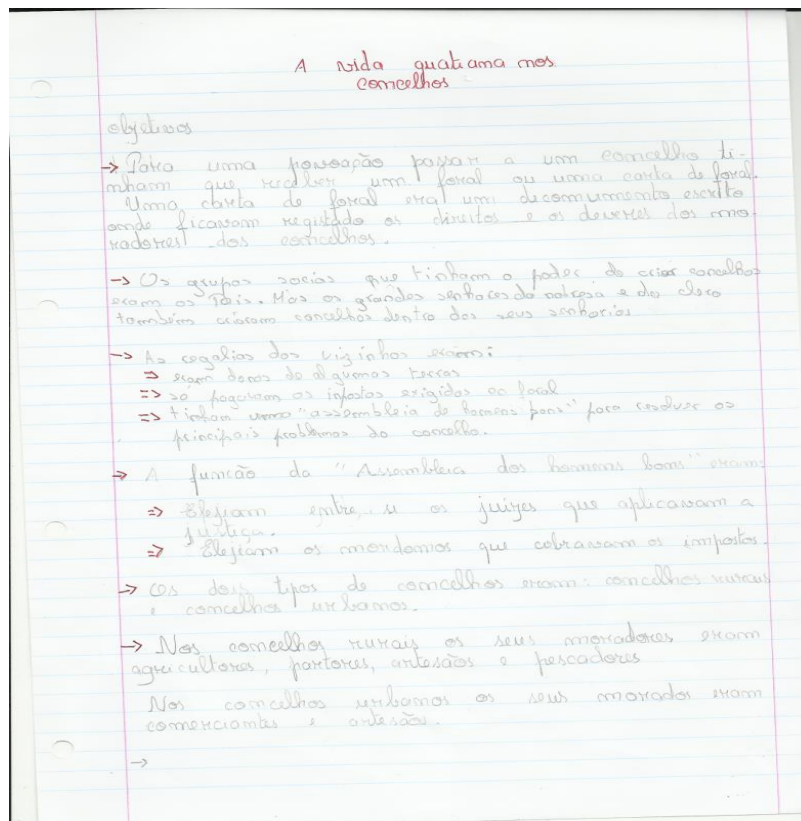 A vida quatiana nos
concelhos
objetivos
→ Para uma povoação passar a um concelho ti-
nham que receber um foral ou uma carta de foral.
Uma carta de foral era um dicomumento escrito
onde ficavam registado os direitos e os deveres dos mo-
radores dos concelhos.
→ Os grupos socias que tinham o poder de criar concelhos
eram os reis. Mas os grandes senhores da nobresa e do clero
também criaram concelhos dentro dos seus senhorios
→ As regalias dos vizinhos eram:
⇒ eram donos de algumas terras
⇒ só pagavam os impostos exigidos no foral
⇒ tinham uma "assembleia de homens bons" para resolver os
principais problemas do concelho.
→ A função da "Assembleia dos homens bons" eram:
⇒ Elejiam entre si os juizes que aplicavam a
justiça.
⇒ Elejiam os mordomos que cobravam os impostos.
→ Os dois tipos de concelhos eram: concelhos rurais
e concelhos urbanos.
→ Nos concelhos rurais os seus moradores eram
agricultores, pastores, artesãos e pescadores
Nos concelhos urbanos os seus morados eram
comerciantes e artesãos.
→